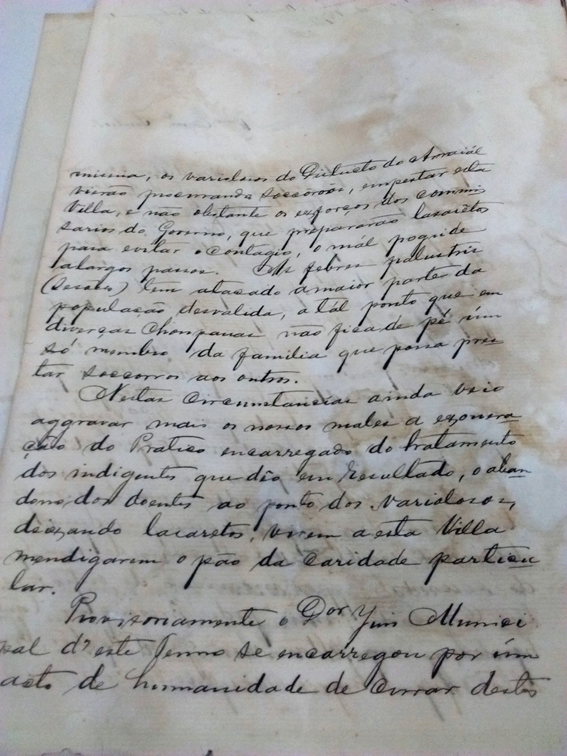 miseria, os variolosos do Districto do Arraiál
vierão procurando soccorros, empestar esta
Villa, e não obstante os exforços dos commis
sarios do Governo, que prepararão lasaretos
para evitar o contagio, o mál progride
alargos passos. As febres palustres
(sesões) tem atacado a maior parte da
população desvalida, a tál ponto que em
diversas choupanas não fica de pé úm
só membro da familia que possa pres
tar soccorros aos outros.
Nestas circunstancias ainda veio
aggravar mais os nossos males a exonera
ção do Pratico encarregado do tratamento
dos indigentes que dêo em resultado, o aban
dono, dos doentes ao ponto dos variolosos,
deixando lasaretos, virem a esta Villa
mendigarem o pão da caridade particu
lar.
Provisoriamente o Dor Juis Munici
pal d'este Termo se encarregou por úm
acto de humanidade de curar destes